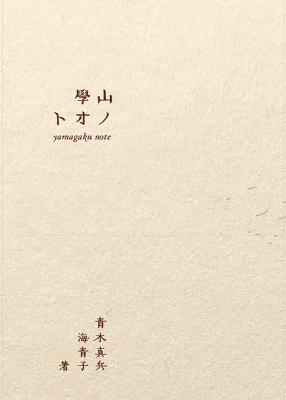 山學
ノオト
yamagaku note
青木真兵
海青子
著